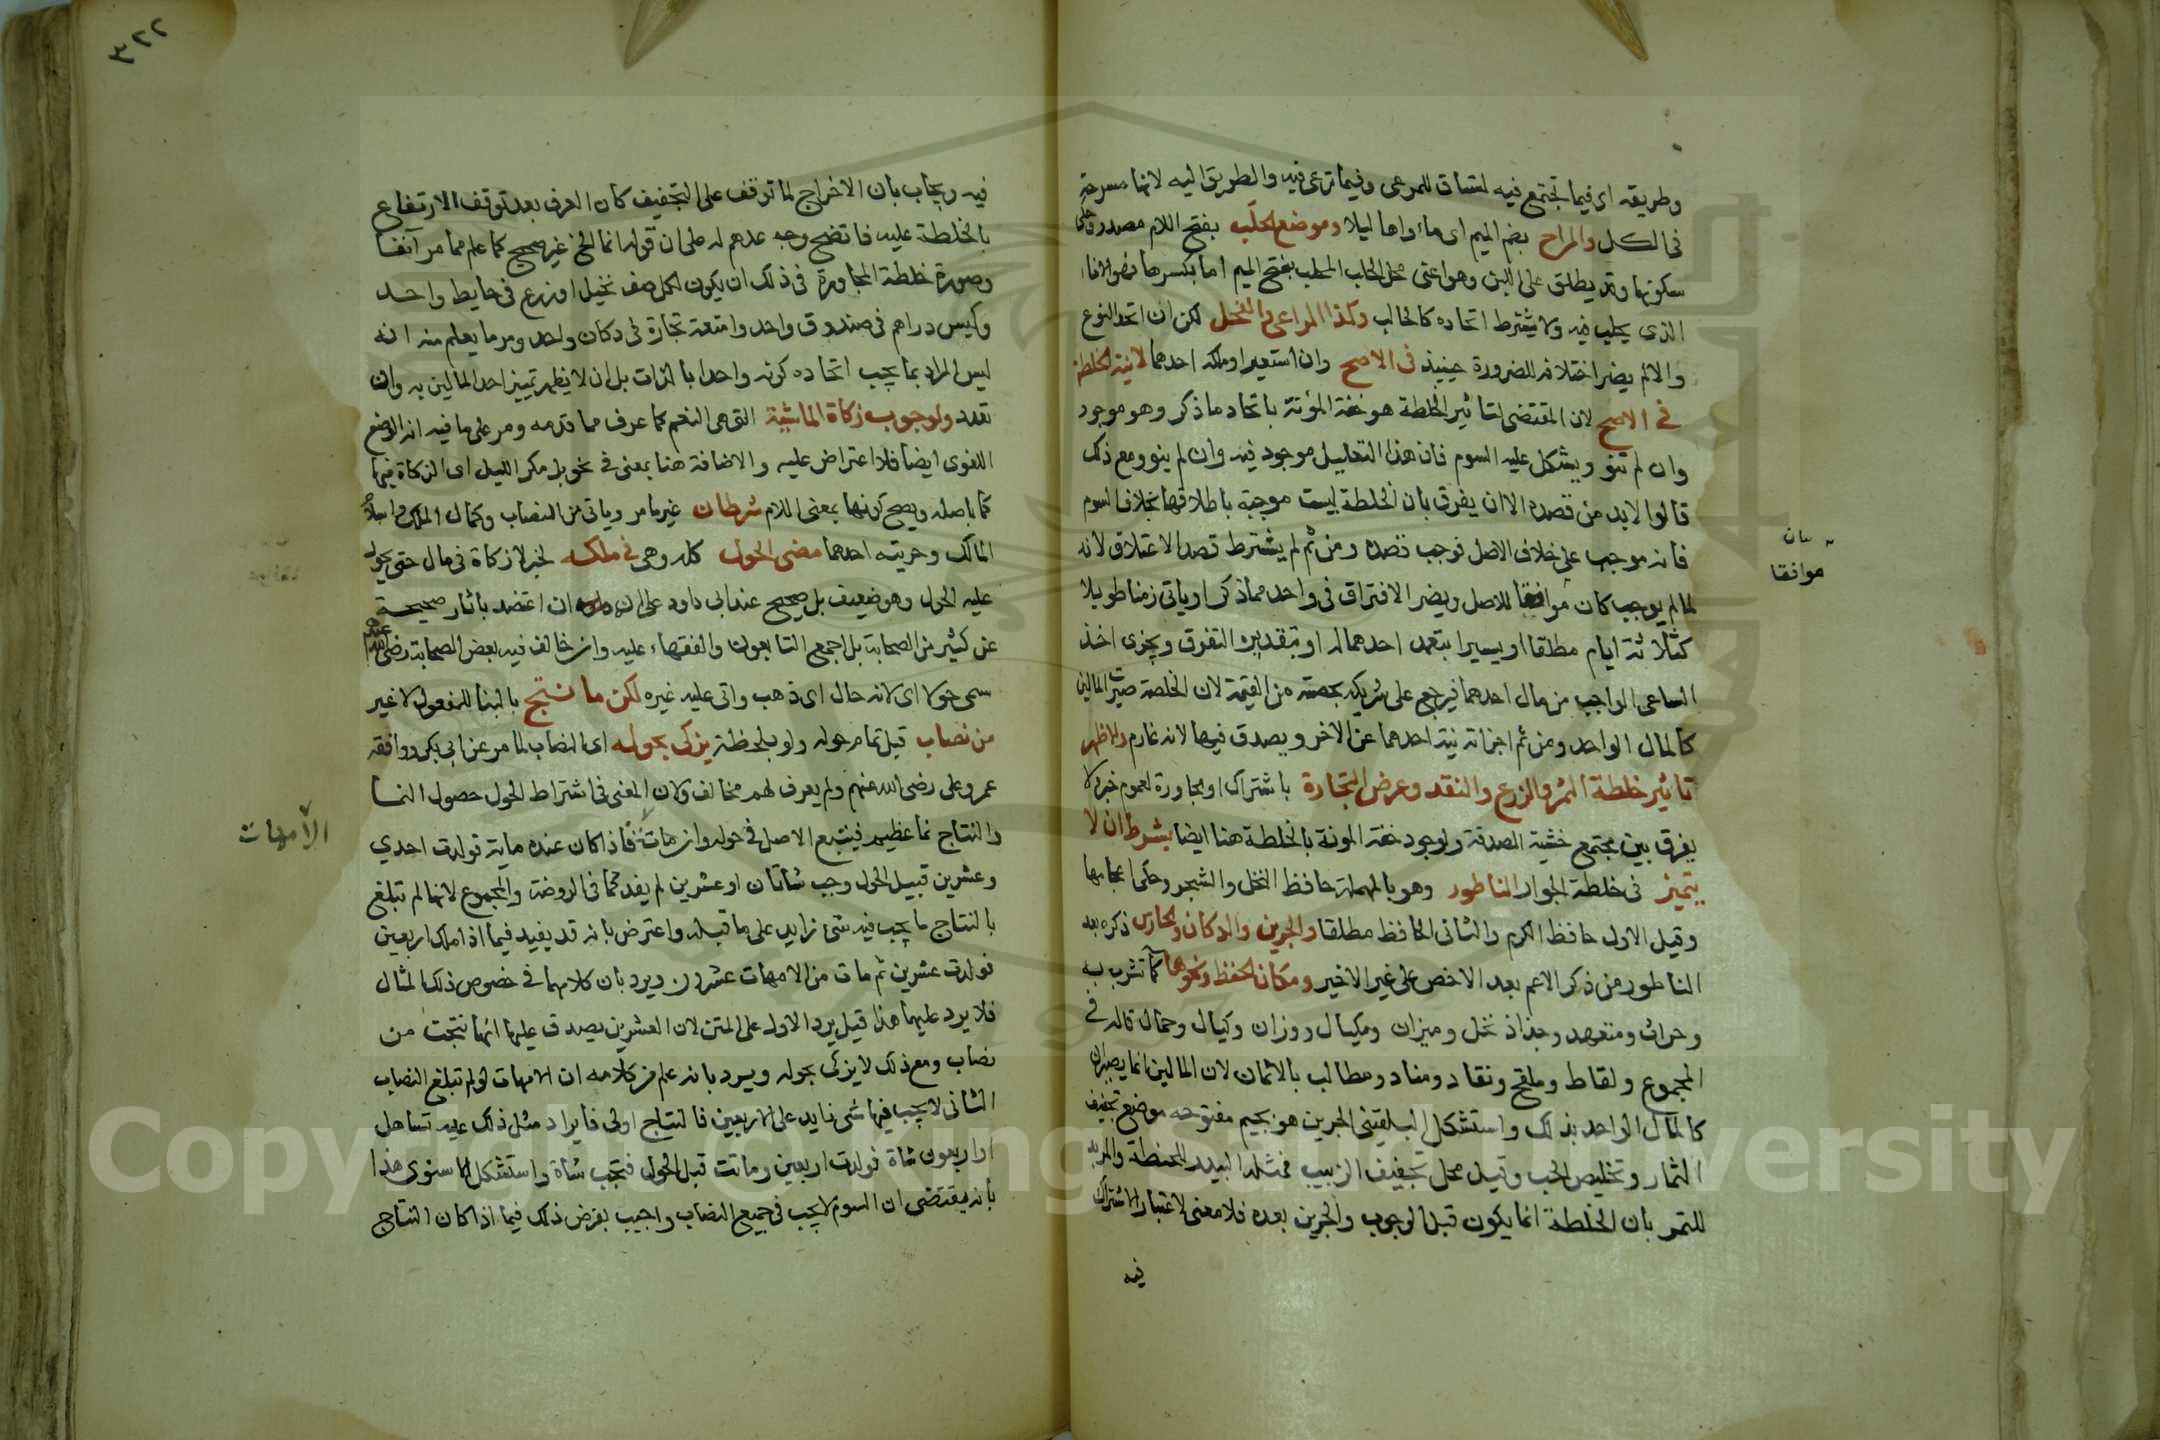 وطريقه اى فيما تجتمع فيه لتساق للمرعى وفيما ترعى فيه والطريق اليه لانها مسرحة
فى الكل والمراح بضم الميم اى مأواها ليلا وموضع الحلب بفتح اللام مصدر وحكى
سكونها وقد يطلق على اللبن وهو اعنى محل الحلب المحلب بفتح الميم اما بكسرها فهو الاناء
الذى يحلب فيه ولا يشترط اتحاده كالحالب وكذا الراعى والفحل لكن ان اتحد النوع
والا لم يضر اختلافه للضرورة حينيذ فى الاصح وان استعير او ملكه احدهما لا نية الخلطة
فى الاصح لان المقتضى لتاثير الخلطة هو خفة المؤنة باتحاد ما ذكر وهو موجود
وان لم تنو ويشكل عليه السوم فان هذا التعليل موجود فيه وان لم ينو ومع ذلك
قالوا لابد من قصده الا ان يفرق بان الخلطة ليست موجبة باطلاقها بخلاف السوم
فانه موجب على خلاف الاصل فوجب قصده ومن ثم لم يشترط قصد الاعتلاف لانه
لما لم يوجب كان موافقا للاصل ويضر الافتراق فى واحد مما ذكر او ياتى زمنا طويلا
كثلاثة ايام مطلقا او يسيرا بتعمد احدهما له او بتقدير التفرق ويجزى اخذ
الساعى الواجب من مال احدهما فيرجع على شريكه بحصته من القيمة لان الخلطة صيرت المالين
كالمال الواحد ومن ثم اجزاته نية احدهما عن الاخر ويصدق فيها لانه غارم والاظهر
تاثير خلطة الثمر والزرع والنقد وعرض التجارة باشتراك او مجاورة لعموم خبر لا
يفرق بين مجتمع خشية الصدقة ولوجود خفة المونة بالخلطة هنا ايضا بشرط ان لا
يتميز فى خلطة الجوار الناطور وهو بالمهملة حافظ النخل والشجر وحكى اعجامها
وقيل الاول حافظ الكرم والثانى الحافظ مطلقا والجرين والدكان والحارس ذكره بعد
الناطور من ذكر الاعم بعد الاخص على غير الاخير ومكان الحفظ ونحوها كماء تشرب به
وحراث ومتعهد وجذاذ نخل وميزان ومكيال ووزان وكيال وحمال قاله فى
المجموع ولقاط وملقح ونقاد ومناد ومطالب بالاثمان لان المالين انما يصيران
كالمال الواحد بذلك واستشكل البلقينى الجرين هو بجيم مفتوحه موضع تجفيف
الثمار وتخليص الحب وقيل محل تجفيف الزبيب فمثله البيدر للحنطة والمربد
للتمر بان الخلطة انما يكون قبل الوجوب والجرين بعده فلا معنى لاعتبار الاشتراك
فيه
بيان
موافقا
٣٢٢
فيه ويجاب بان الاخراج لما توقف على التجفيف كان العرف بعد توقف الارتفاع
بالخلطة عليه فاتضح وجه عدهم له على ان قوله انما الخ غير صحيح كما علم مما مر آنفا
وصورة خلطة المجاورة فى ذلك ان يكون لكل صف نخيل او زرع فى حايط واحد
وكيس دراهم فى صندوق واحد وامتعة تجارة فى دكان واحد ومر ما يعلم منه انه
ليس المراد بما يجب اتحاده كونه واحدا بالذات بل ان لا يظهر تمييز احد المالين به وان
تعدد ولوجوب زكاة الماشية التى هى النعم كما عرف مما قدمه ومر على ما فيه انه الوضع
اللغوى ايضا فلا اعتراض عليه والاضافة هنا بمعنى فى نحو بل مكر الليل اى الزكاة فيها
كما باصله ويصح كونها بمعنى اللام شرطان غير ما مر وياتى من النصاب وكمال الملك واسلام
المالك وحريته احدهما مضى الحول كله وهى فى ملكه لخبر لا زكاة فى مال حتى يحول
عليه الحول وهو ضعيف بل صحيح عند ابى داود على انه اعتضد باثار صحيحة
عن كثير من الصحابة بل اجمع التابعون والفقهاء عليه وان خالف فيه بعض الصحابة رضى الله عنهم
سمى حولا اى لانه حال اى ذهب واتى عليه غيره لكن ما نتج بالبنا للمفعول لا غير
من نصاب قبل تمام حوله ولو بلحظة يزكى بحوله اى النصاب لما مر عن ابى بكر ووافقه
عمر وعلى رضى الله عنهم ولم يعرف لهم مخالف ولان المعنى فى اشتراط الحول حصول النما
والنتاج نما عظيم فيتبع الاصل فى حوله وان ماتت فاذا كان عنده ماية فولدت احدى
وعشرين قبيل الحول وجب شاتان او عشرين لم يفد كما فى الروضة والمجموع لانها لم تبلغ
بالنتاج ما يجب فيه شئ زايد على ما قبله واعترض بانه قد يفيد فيما اذا ملك اربعين
فولدت عشرين ثم مات من الامهات عشرون ويرد بان كلامهما فى خصوص ذلك المثال
فلا يرد عليهما هذا قيل يرد الاول على المتن لان العشرين يصدق عليها انها نتجت من
نصاب ومع ذلك لا يزكى بحوله ويرد بانه علم من كلامه ان الامهات لو لم تبلغ النصاب
الثانى لا يجب فيها شى زايد على الاربعين فالنتاج اولى فايراد مثل ذلك عليه تساهل
او اربعون شاة فولدت اربعين وماتت قبل الحول فتجب شاة واستشكل الاسنوى هذا
بانه يقتضى ان السوم لا يجب فى جميع النصاب واجيب بفرض ذلك فيما اذا كان النتاج
الأمهات
Copyright © King Saud University